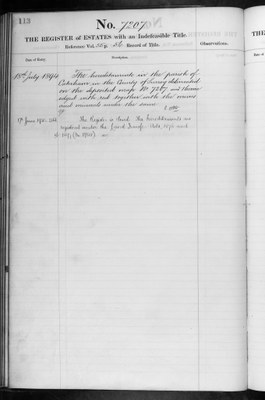 113
No. 7207
THE REGISTER of ESTATES with an Indefeasible Title
Reference Vol. Record of Title.
Observations.
Date of Entry.
Description.
18th July 1894
The hereditaments in the parish of
Caterham in the County of Surrey delineated
on the deposited map No 7207 and thereon
edged with red together with the mines
and minerals under the same
The Register is closed. The hereditaments are
registered under the Land Transfer Acts, 1875 and